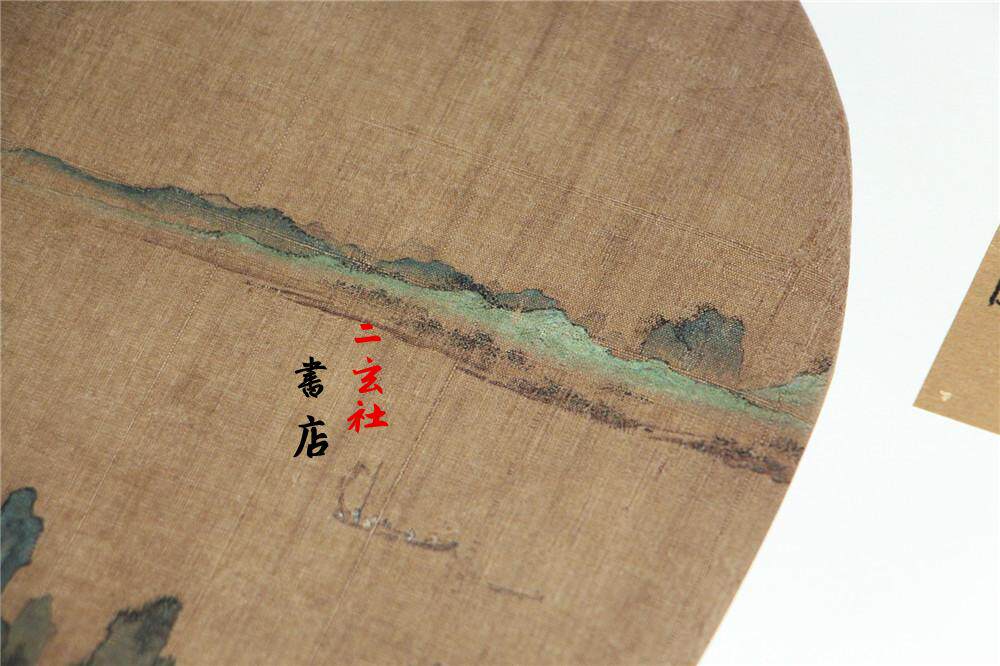 二玄社
書店